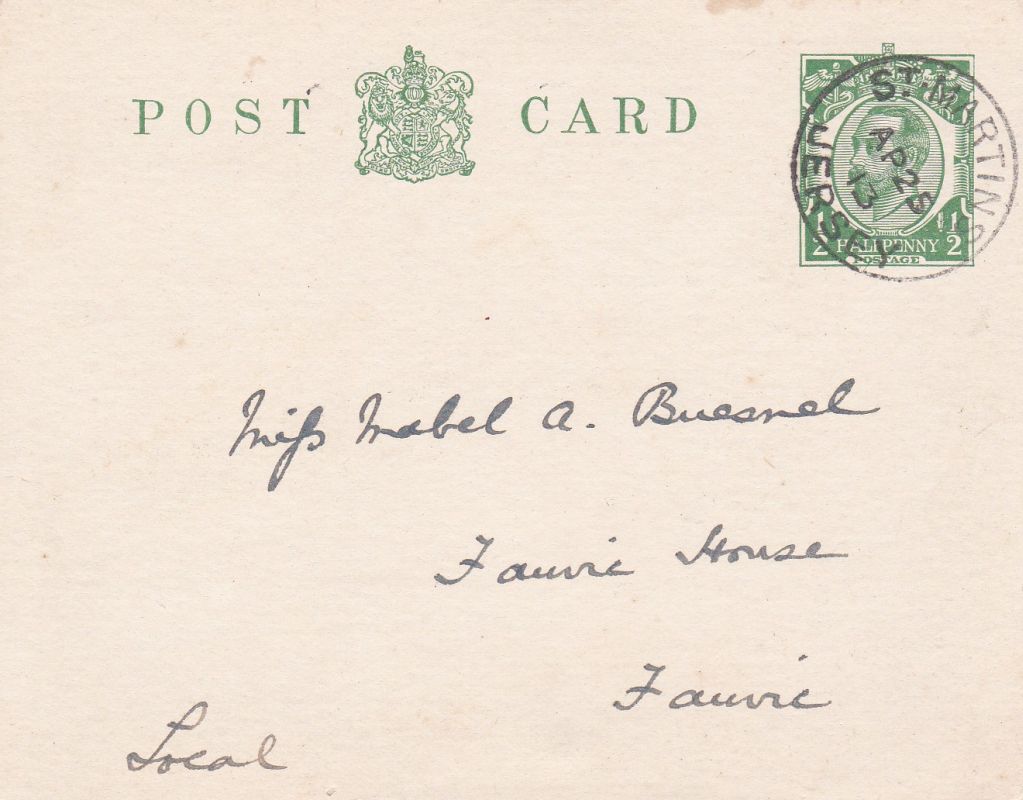 POST CARD
ST. MARTINS
AP 25
13
JERSEY
1/2 HALFPENNY 1/2
POSTAGE
Miss Mabel A. Buesnel
Fauvic House
Fauvic
Local